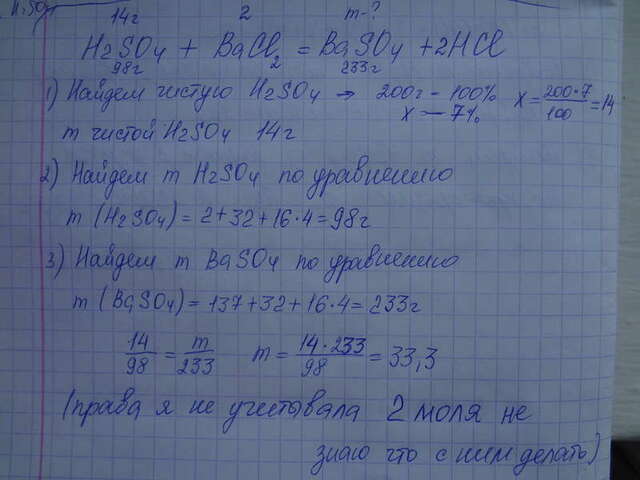 14г 2 m-?
H2SO4 + BaCl2 = BaSO4 + 2HCl
98г 233г
1) Найдем чистую H2SO4 → 200г - 100% X = 200*7/100 = 14
X — 7%
m чистой H2SO4 14г
2) Найдем m H2SO4 по уравнению
m (H2SO4) = 2+32+16·4=98г
3) Найдем m BaSO4 по уравнению
m (BaSO4) = 137+32+16·4=233г
14/98 = m/233 m = 14·233/98 = 33,3
(права я не учетывала 2 моля не
знаю что с ним делать)